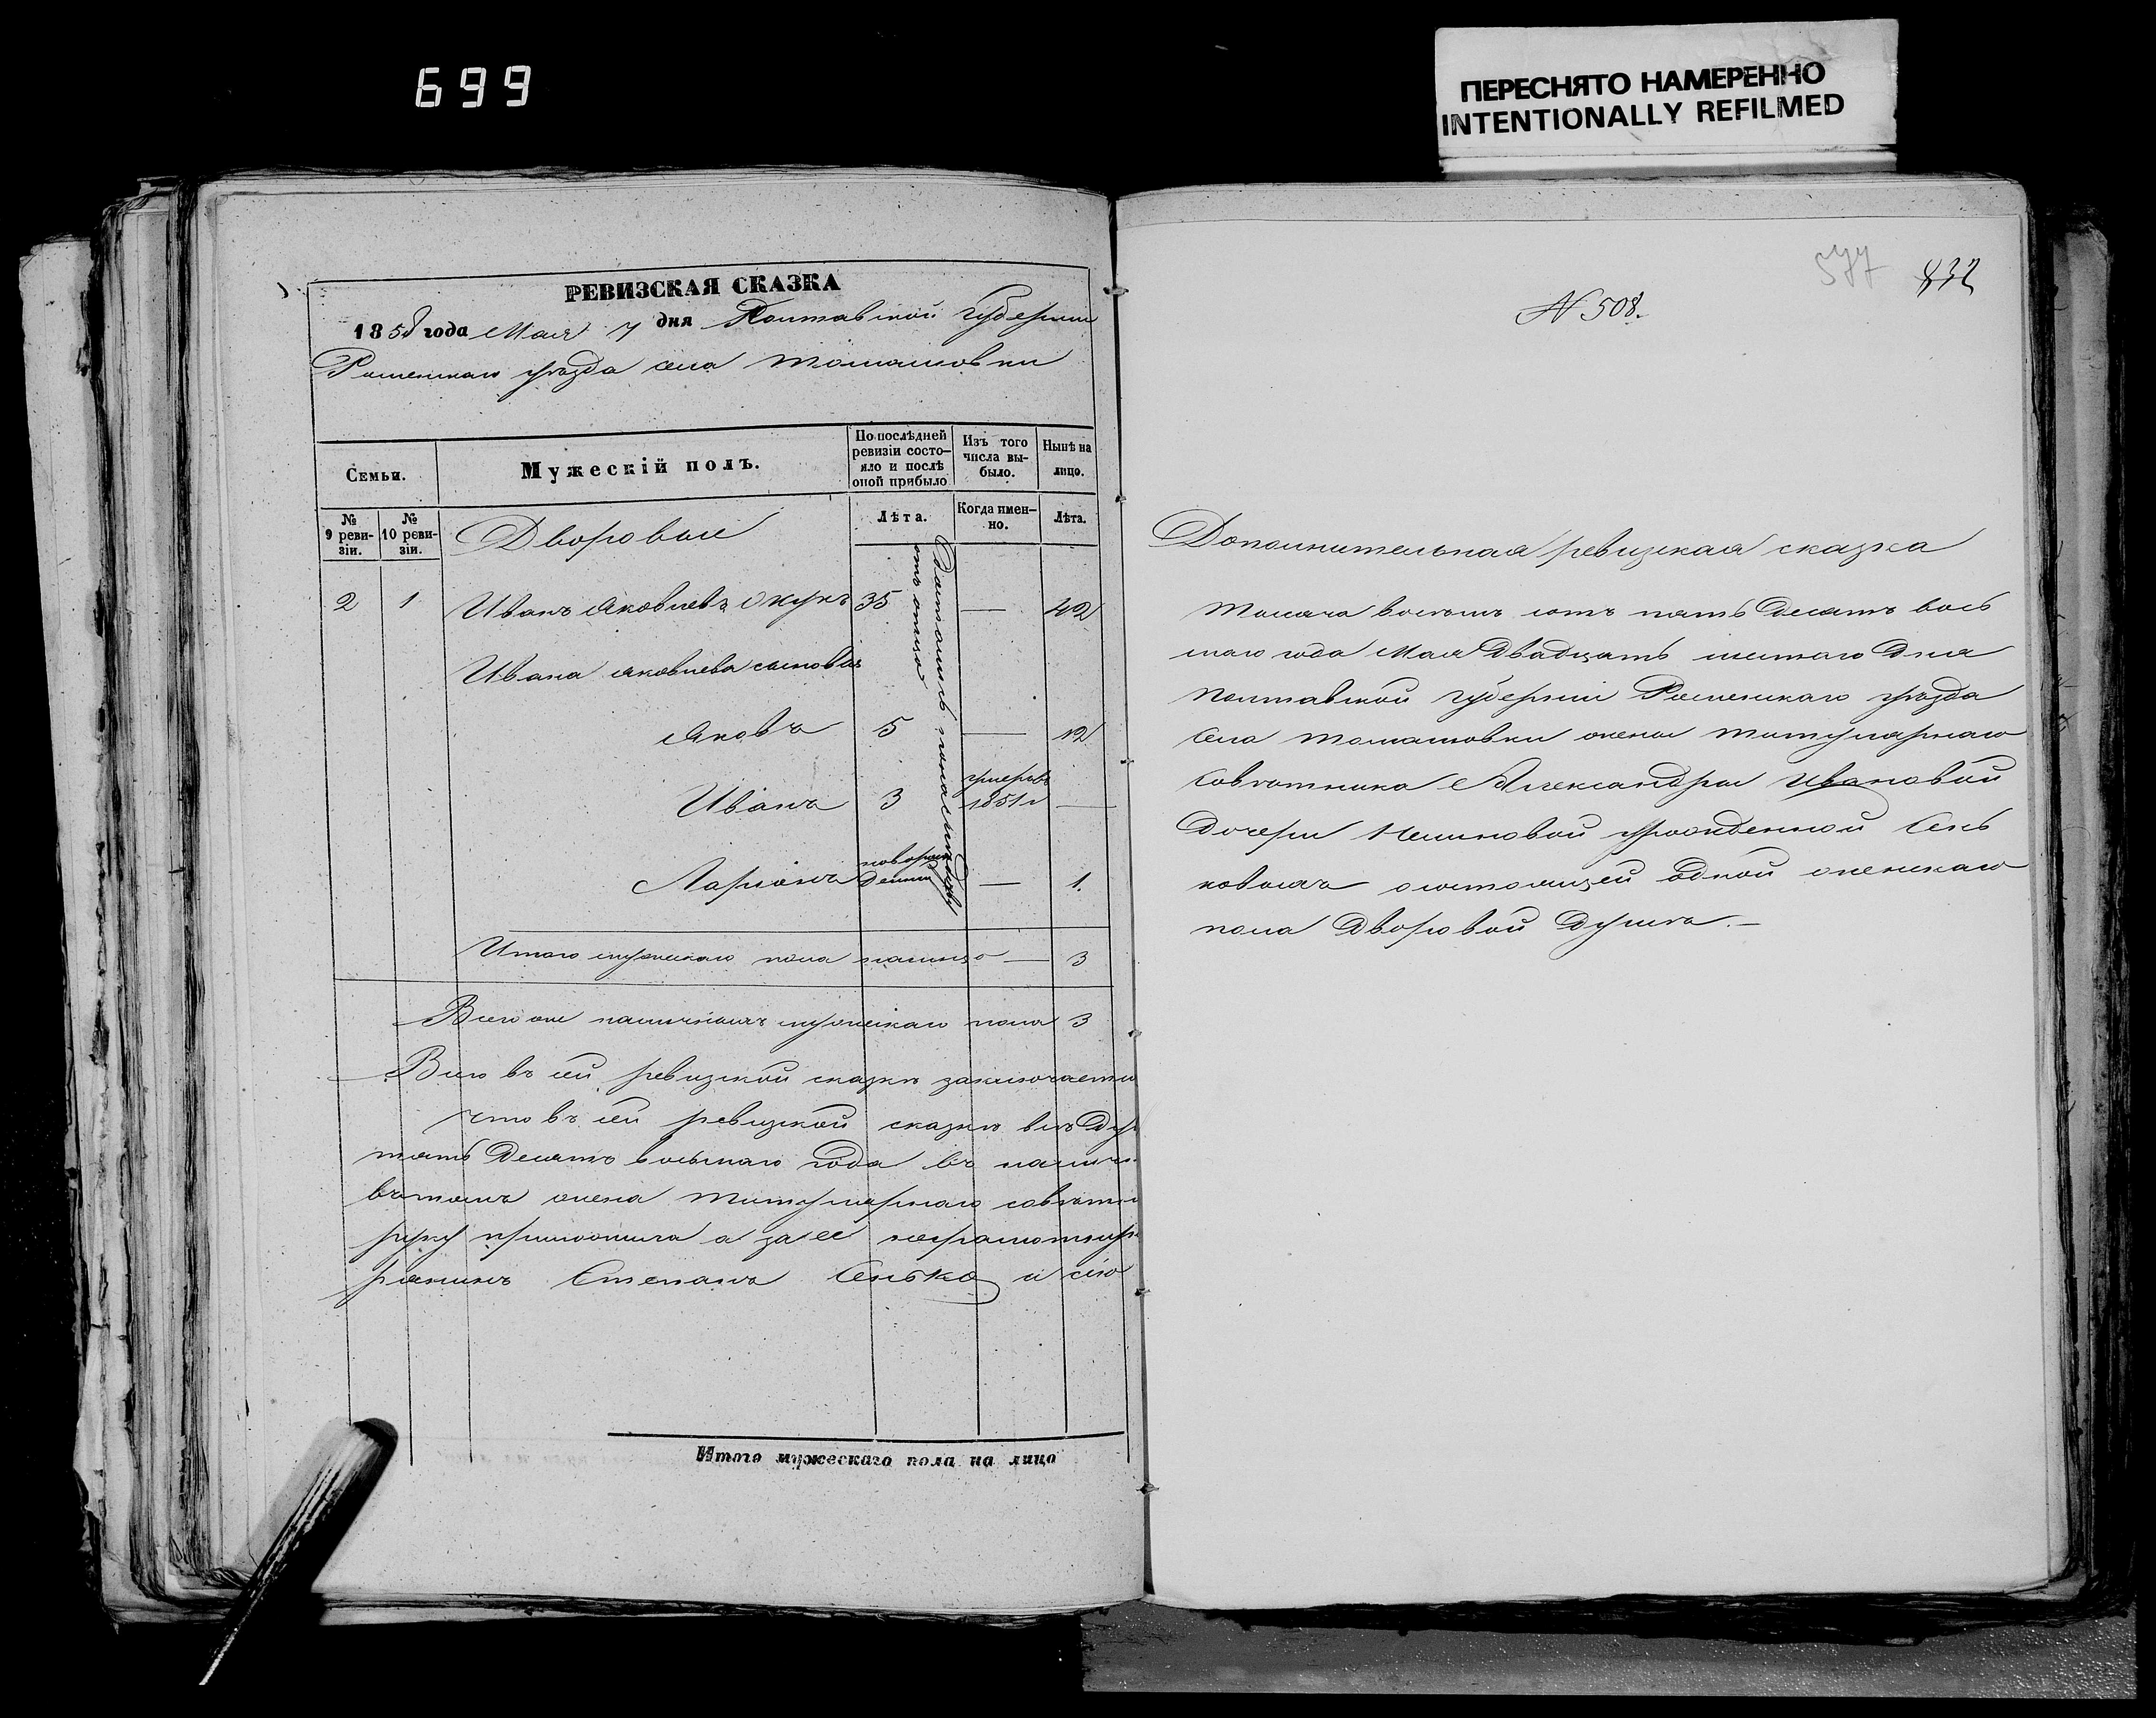 699
ПЕРЕСНЯТО НАМЕРЕННО
INTENTIONALLY REFILMED
РЕВИЗСКАЯ СКАЗКА
1858 года Мая 7 дня Полтавской Губернии
Роменскаго уѣзда села Томашовки
Семьи.
Мужескій полъ.
По послѣдней ревизіи состо-
яло и послѣ оной прибыло
Изъ того числа вы-
было.
Нынѣ на лицо.
№ 9 реви-
зіи.
№ 10 реви-
зіи.
Дворовые
Лѣта.
Когда имен-
но.
Лѣта.
2 1 Иванъ Яковлевъ Окунъ 35 — 42
Ивана Яковлева сыновья
Яковъ 5 — 12
Иванъ 3 умеръ въ 1851 г —
Ларіонъ новорож
денный — 1.
Достались по наслѣдству
отъ отца
Итого мужескаго пола налицо — 3
Всего же наличныхъ мужескаго пола 3
Всего въ сей ревизкой сказкѣ заключается
что въ сей ревизкой сказкѣ всѣ ду
пять десятъ восьмаго года въ налич
въ томъ жена титулярнаго совѣтн
руку приложила а за ее неграмотную
Степанъ Сенько и сію
Итого мужескаго пола на лицо
577 832
N 508.
Дополнительная ревизкая сказка
тысяча восемь сотъ пять десятъ вось
маго года Мая двадцать шестаго дня
Полтавской губерніи Роменскаго уѣзда
села Томашовки жены титулярнаго
совѣтника Александры Ивановой
дочери урожденной Сень
ковыхъ о состоящей одной женскаго
пола дворовой душѣ.—